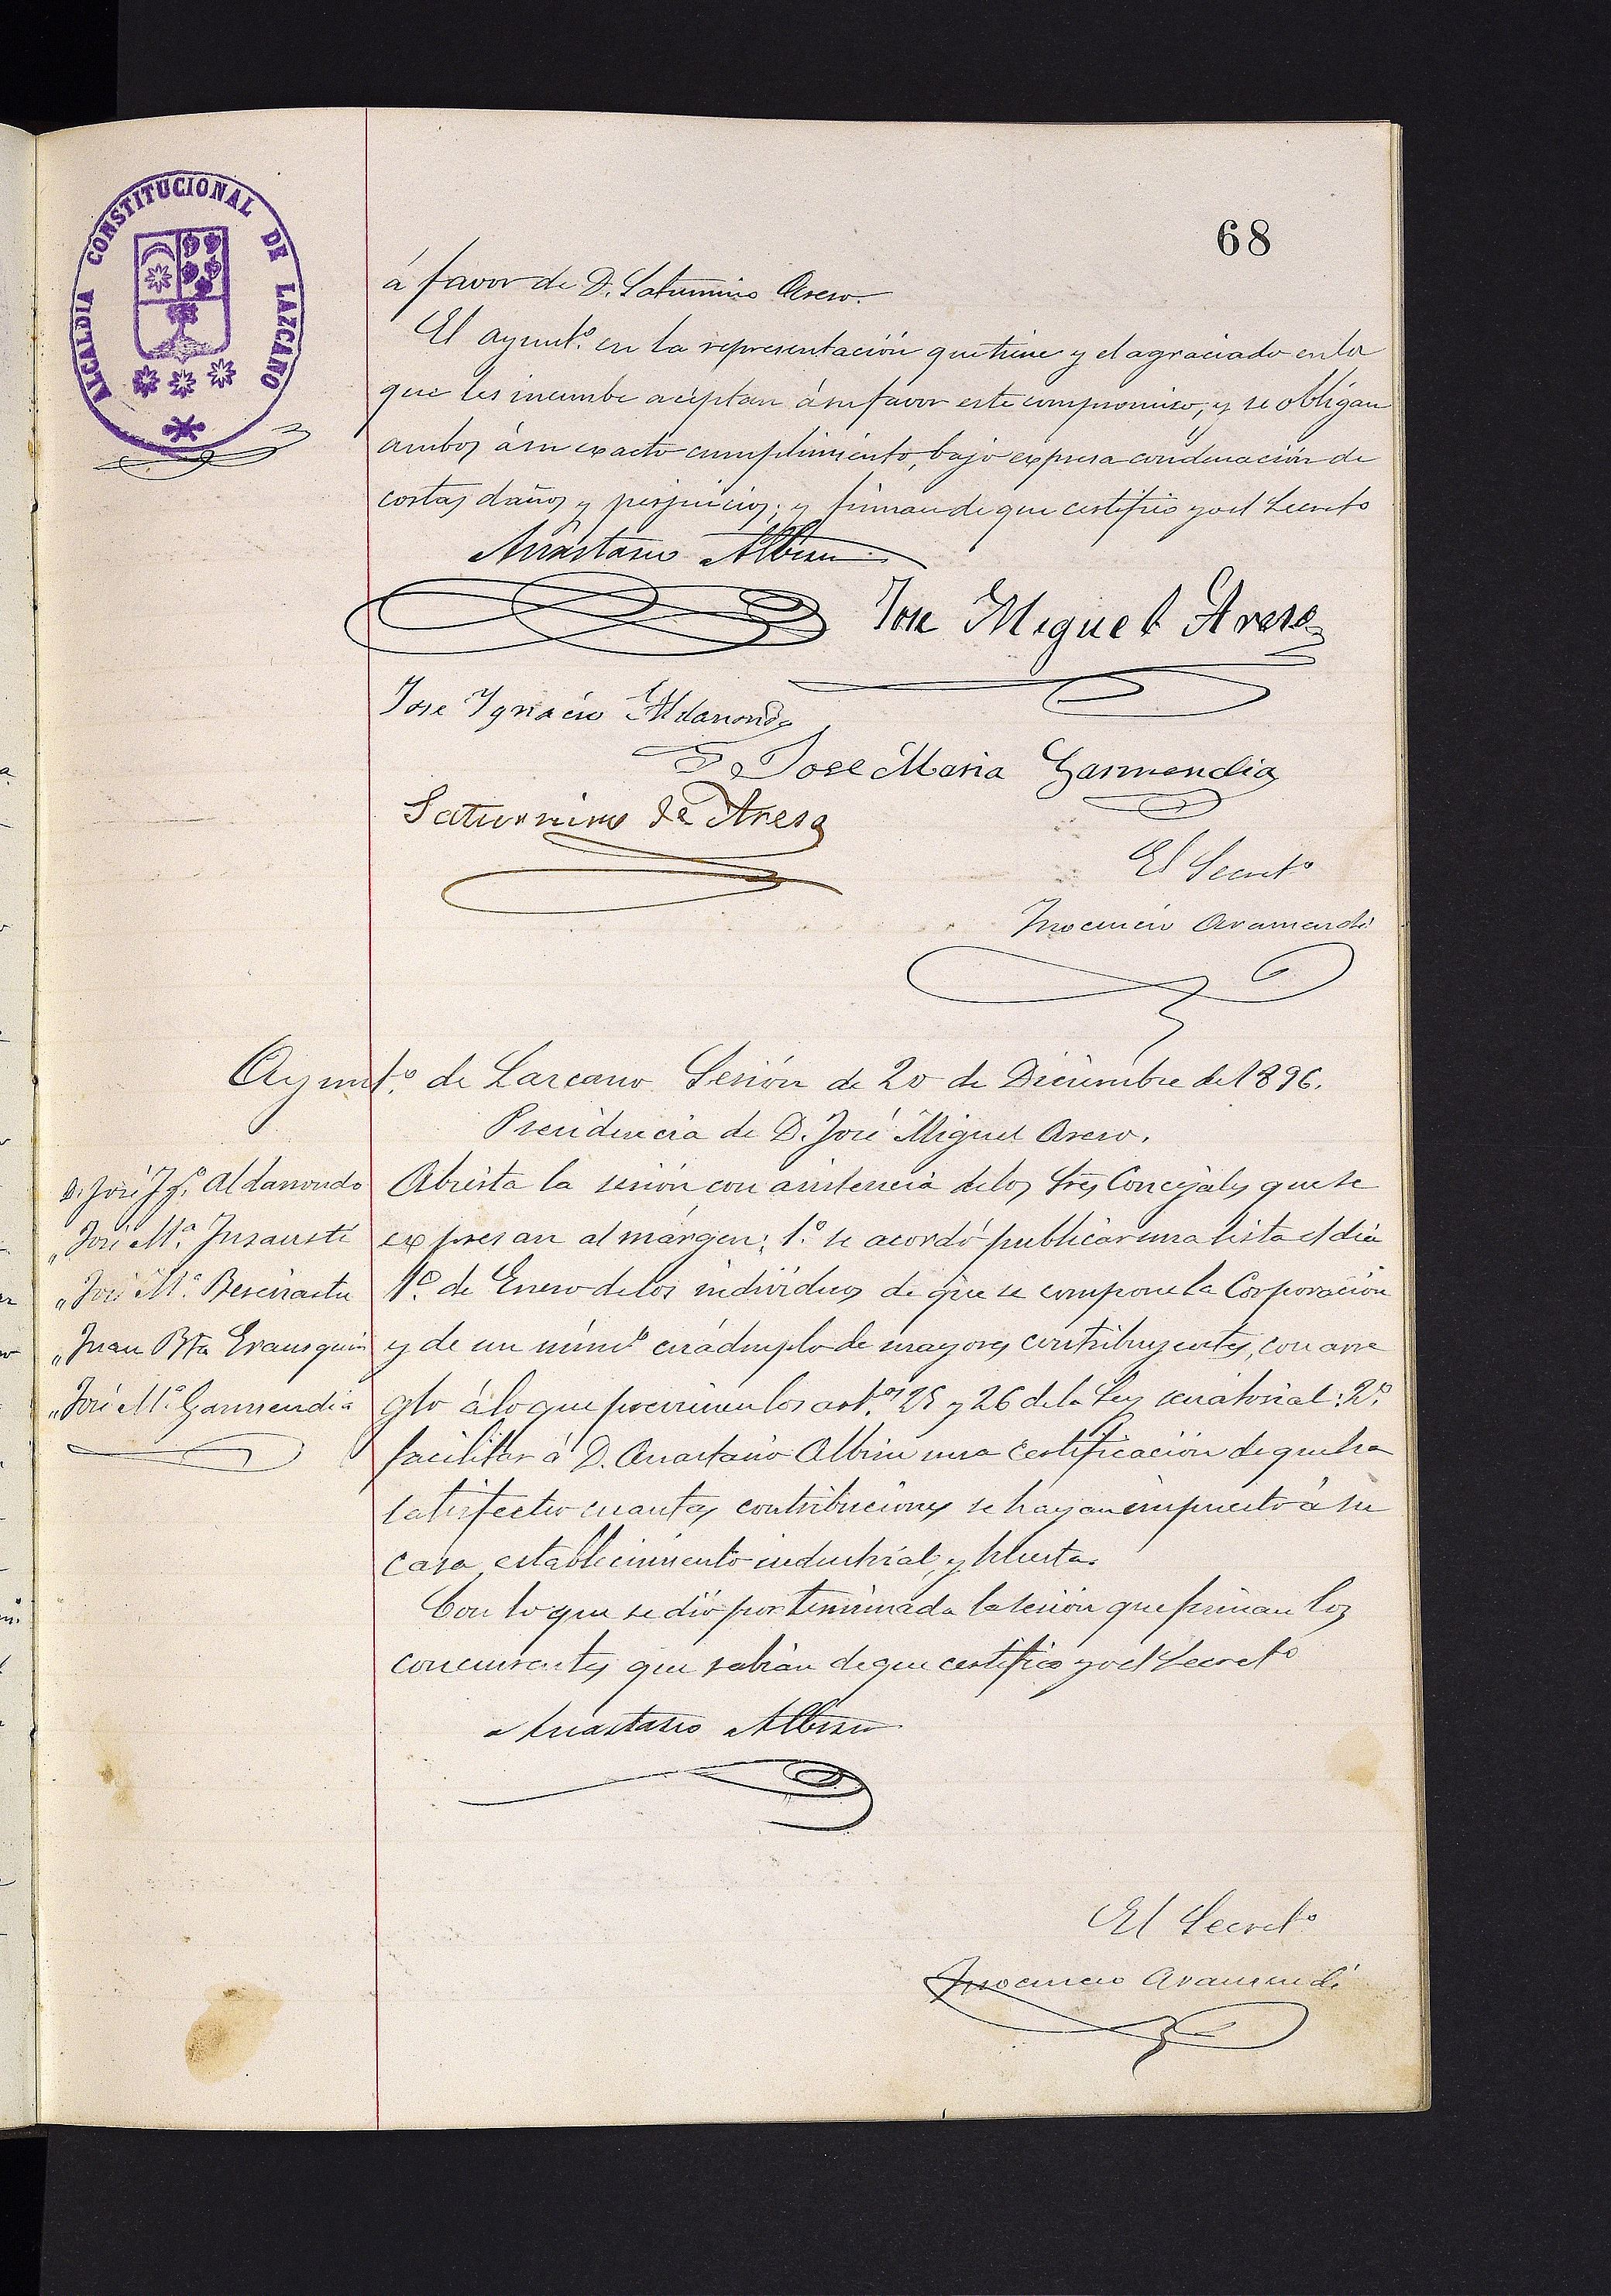 ALCALDIA CONSTITUCIONAL DE LAZCANO
68
á favor de D. Saturnino Areso.
El ayunt.º en la representación que tiene y el agraciado en la
que les incumbe aceptan á su favor este compromiso, y se obligan
ambos á su exacto cumplimiento, bajo expresa condenación de
costas daños y perjuicios; y firman de que certifico yo el Secret.º
Anastasio Albisu
Jose Miguel Areso
Jose Ygnacio Aldanondo
Jose Maria Garmendia
Saturnino de Areso
El Secret.º
Inocencio Aramendi
Ayunt.º de Lazcano Sesión de 20 de Diciembre de 1896.
Presidencia de D. José Miguel Areso.
D. José Ig.º Aldanondo
„ José M.ª Insausti
„ José M.ª
„ Juan Bta Erausquin
„ José M.ª Garmendia
Abierta la sesión con asistencia de los Sres Concejales que se
expresan al márgen; 1.º se acordó publicar una lista el dia
1.º de Enero de los individuos de que se compone la Corporación
y de un núm.º cuádruplo de mayores contribuyentes, con arre
glo á lo que previenen los art.os 25 y 26 de la Ley senatorial: 2.º
facilitar á D. Anastasio Albisu una certificación de que ha
satisfecho cuantas contribuciones se hayan impuesto á su
casa, establecimiento industrial, y huerta.
Con lo que se dió por terminada la sesión que firman los
concurrentes que sabian de que certifico yo el Secret.º
Anastasio Albisu
El Secret.º
Inocencio Aramendi